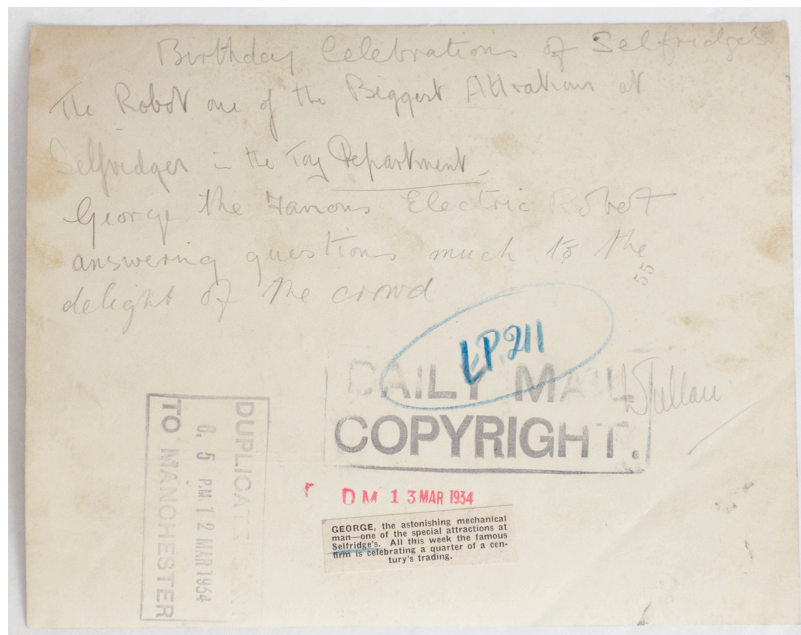 Birthday Celebrations of Selfridge's
The Robot one of the Biggest Attrations at
Selfridges in the Toy Department
George the Famous Electric Robot
answering questions much to the
55
delight of the crowd
LP.211
DAILY MAIL
COPYRIGHT.
DUPLICATE
6. 5 PM 12 MAR 1934
TO MANCHESTER
DM 13 MAR 1934
GEORGE, the astonishing mechanical
man—one of the special attractions at
Selfridge's. All this week the famous
firm is celebrating a quarter of a cen-
tury's trading.